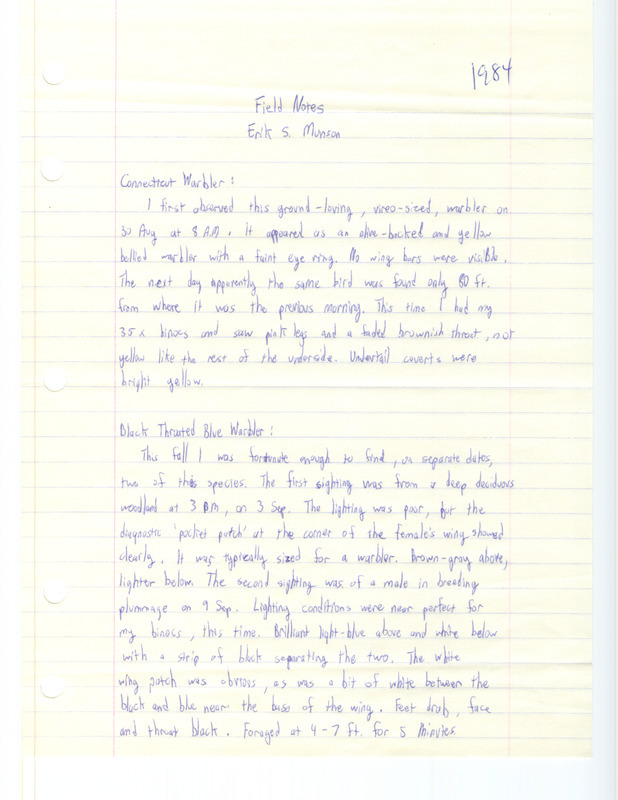 1984
Field Notes
Erik S. Munson
Connecticut Warbler:
I first observed this ground-loving, vireo-sized, warbler on
30 Aug at 8 A.M. It appeared as an olive-backed and yellow
bellied warbler with a faint eye ring. No wing bars were visible.
The next day apparently the same bird was found only 80 ft.
from where it was the previous morning. This time I had my
35x binocs and saw pink legs and a faded brownish throat, not
yellow like the rest of the underside. Undertail coverts were
bright yellow.
Black Throated Blue Warbler:
This fall I was fortunate enough to find, on separate dates,
two of this species. The first sighting was from a deep deciduous
woodland at 3 PM, on 3 Sep. The lighting was poor, but the
diagnostic 'pocket patch' at the corner of the female's wing showed
clearly. It was typically sized for a warbler. Brown-gray above,
lighter below. The second sighting was of a male in breeding
plummage on 9 Sep. Lighting conditions were near perfect for
my binocs, this time. Brilliant light-blue above and white below
with a strip of black separating the two. The white
wing patch was obvious, as was a bit of white between the
black and blue near the base of the wing. Feet drab, face
and throat black. Foraged at 4-7 ft. for 5 minutes